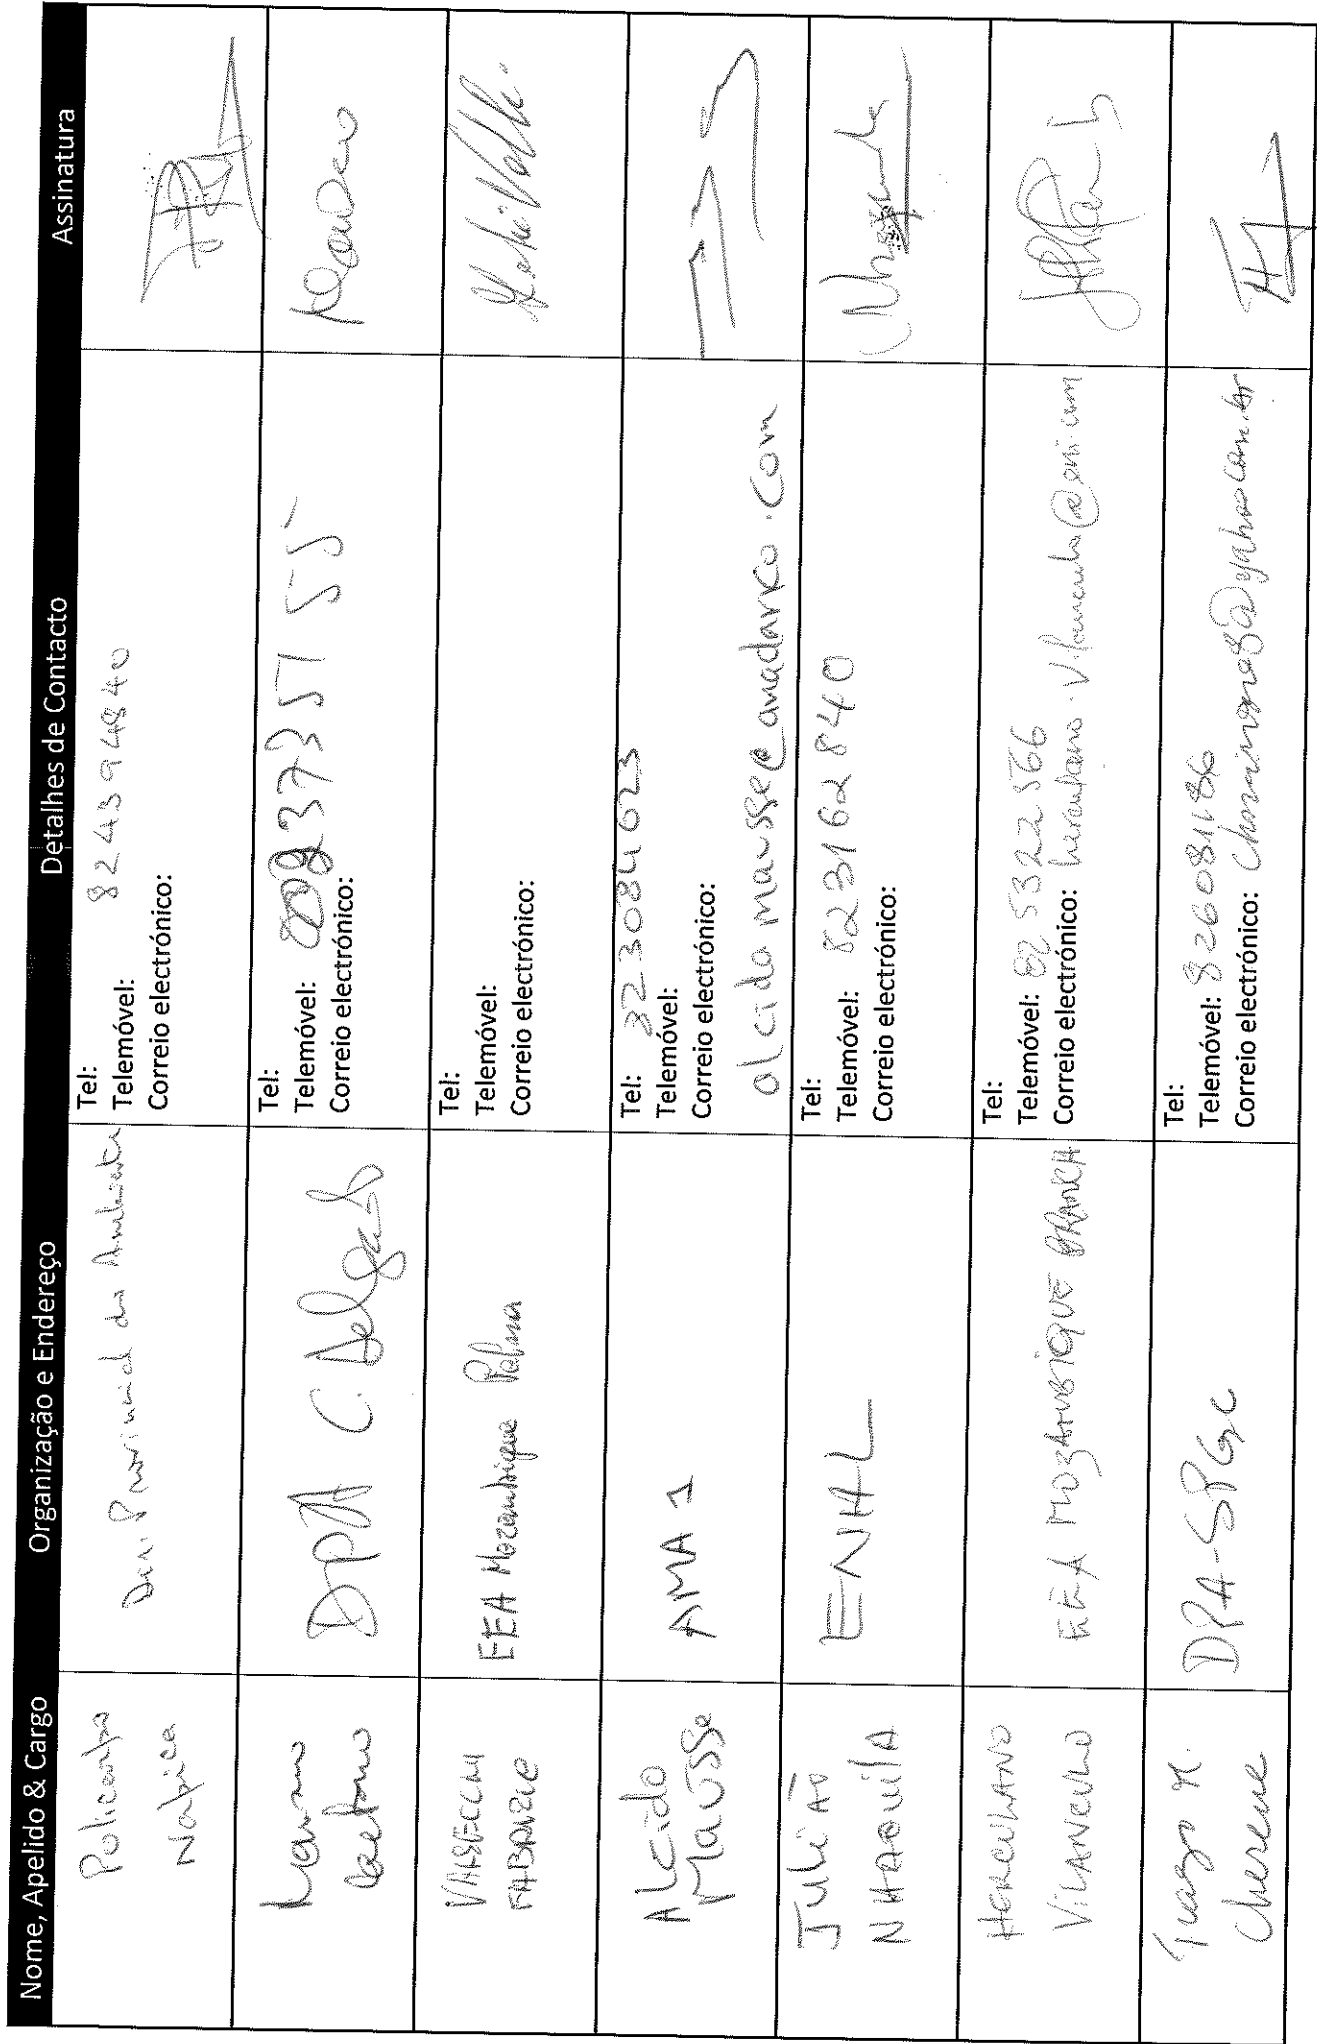 Nome, Apelido & Cargo Organização e Endereço Detalhes de Contacto Assinatura
Policarpo
Napica
Provincial do Ambiente
Tel:
Telemóvel: 824394840
Correio electrónico:
Caetano
DPA C. Delgado
Tel:
Telemóvel:
Correio electrónico:
VALSECCHI
FABRIZIO
EEA Mozambique Palma
Tel:
Telemóvel:
Correio electrónico:
ALCido
Mausse
AMA 1
Tel: 823084023
Telemóvel:
Correio electrónico:
alcido mausse@anadarko.com
Julião
ENHL
Tel:
Telemóvel: 823162840
Correio electrónico:
HERCULANO
VILANCULO
EEA MOZAMBIQUE BRANCH
Tel:
Telemóvel: 825322566
Correio electrónico: herculano.vilanculo@eni.com
Cherene
DPA-SPGC
Tel:
Telemóvel: 826081186
Correio electrónico: